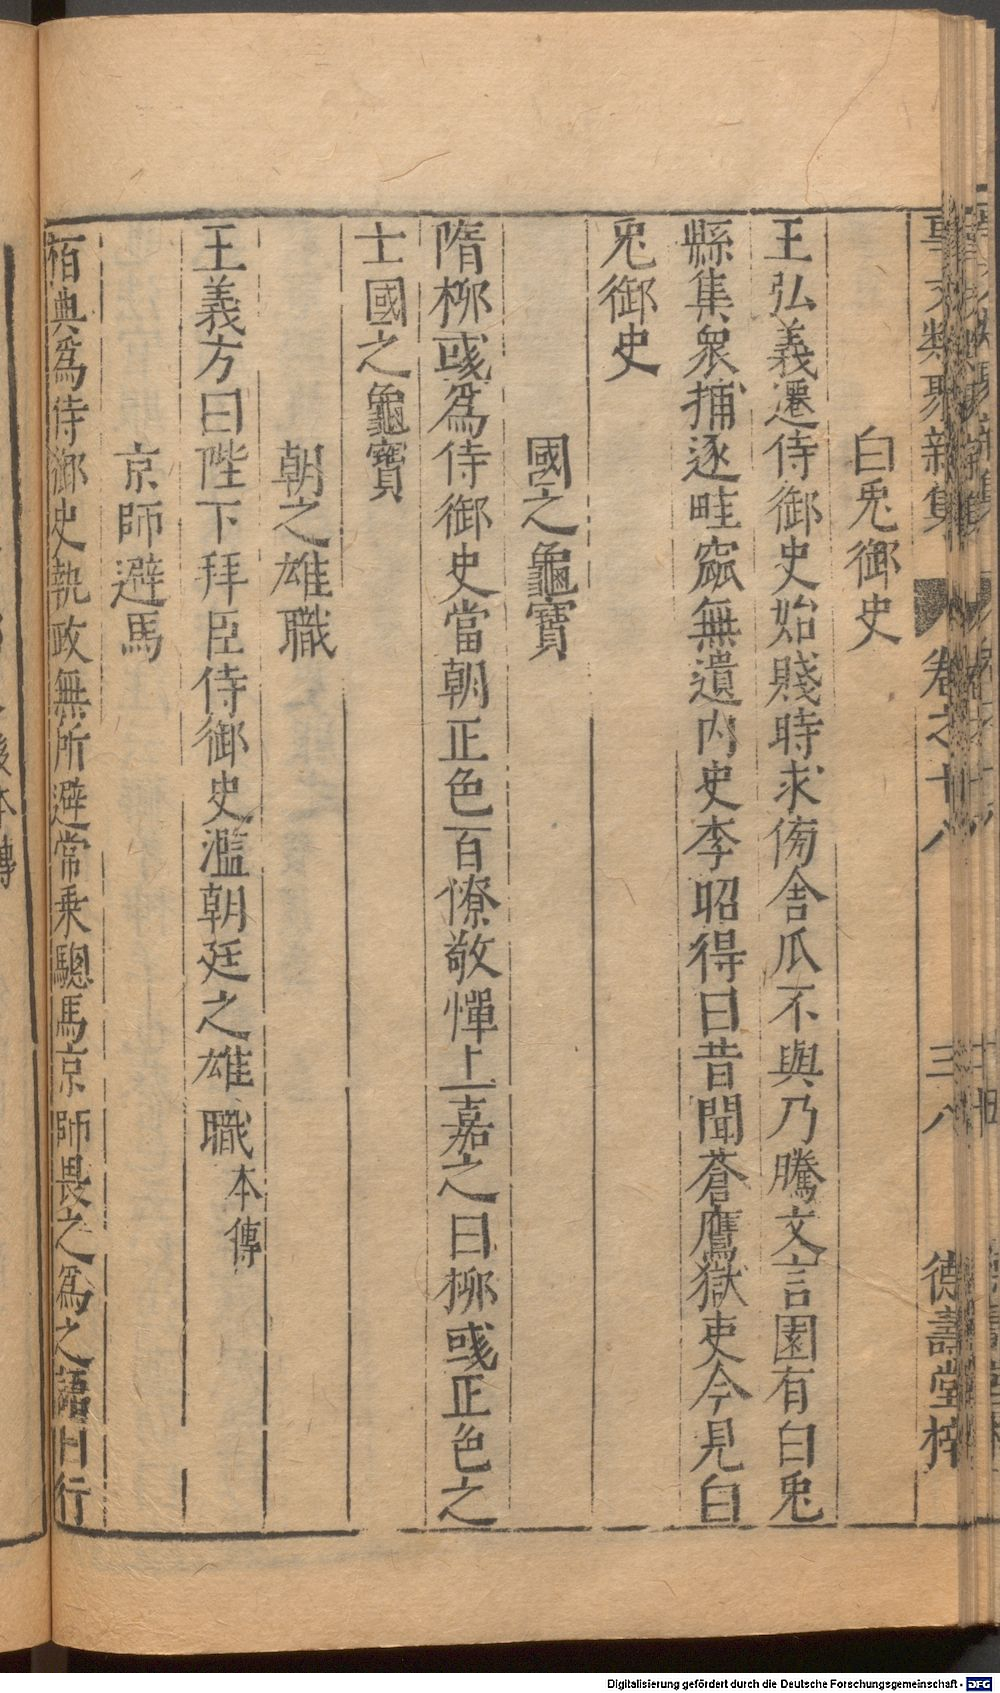 事文類聚新集 卷之十八 三八 德壽堂梓
白兎御史
王弘義遷侍御史始賤時求傍舍瓜不與乃騰文言園有白兎
縣集衆捕逐畦窳無遺內史李昭得曰昔聞蒼鷹獄吏今見白
兎御史
國之龜寶
隋柳彧爲侍御史當朝正色百僚敬憚上嘉之曰柳彧正色之
士國之龜寶
朝之雄職
王義方曰陛下拜臣侍御史濫朝廷之雄職本傳
京師避馬
栢典爲侍御史執政無所避常乘驄馬京師畏之爲之語曰行
本傳
Digitalisierung gefördert durch die Deutsche Forschungsgemeinschaft - DFG